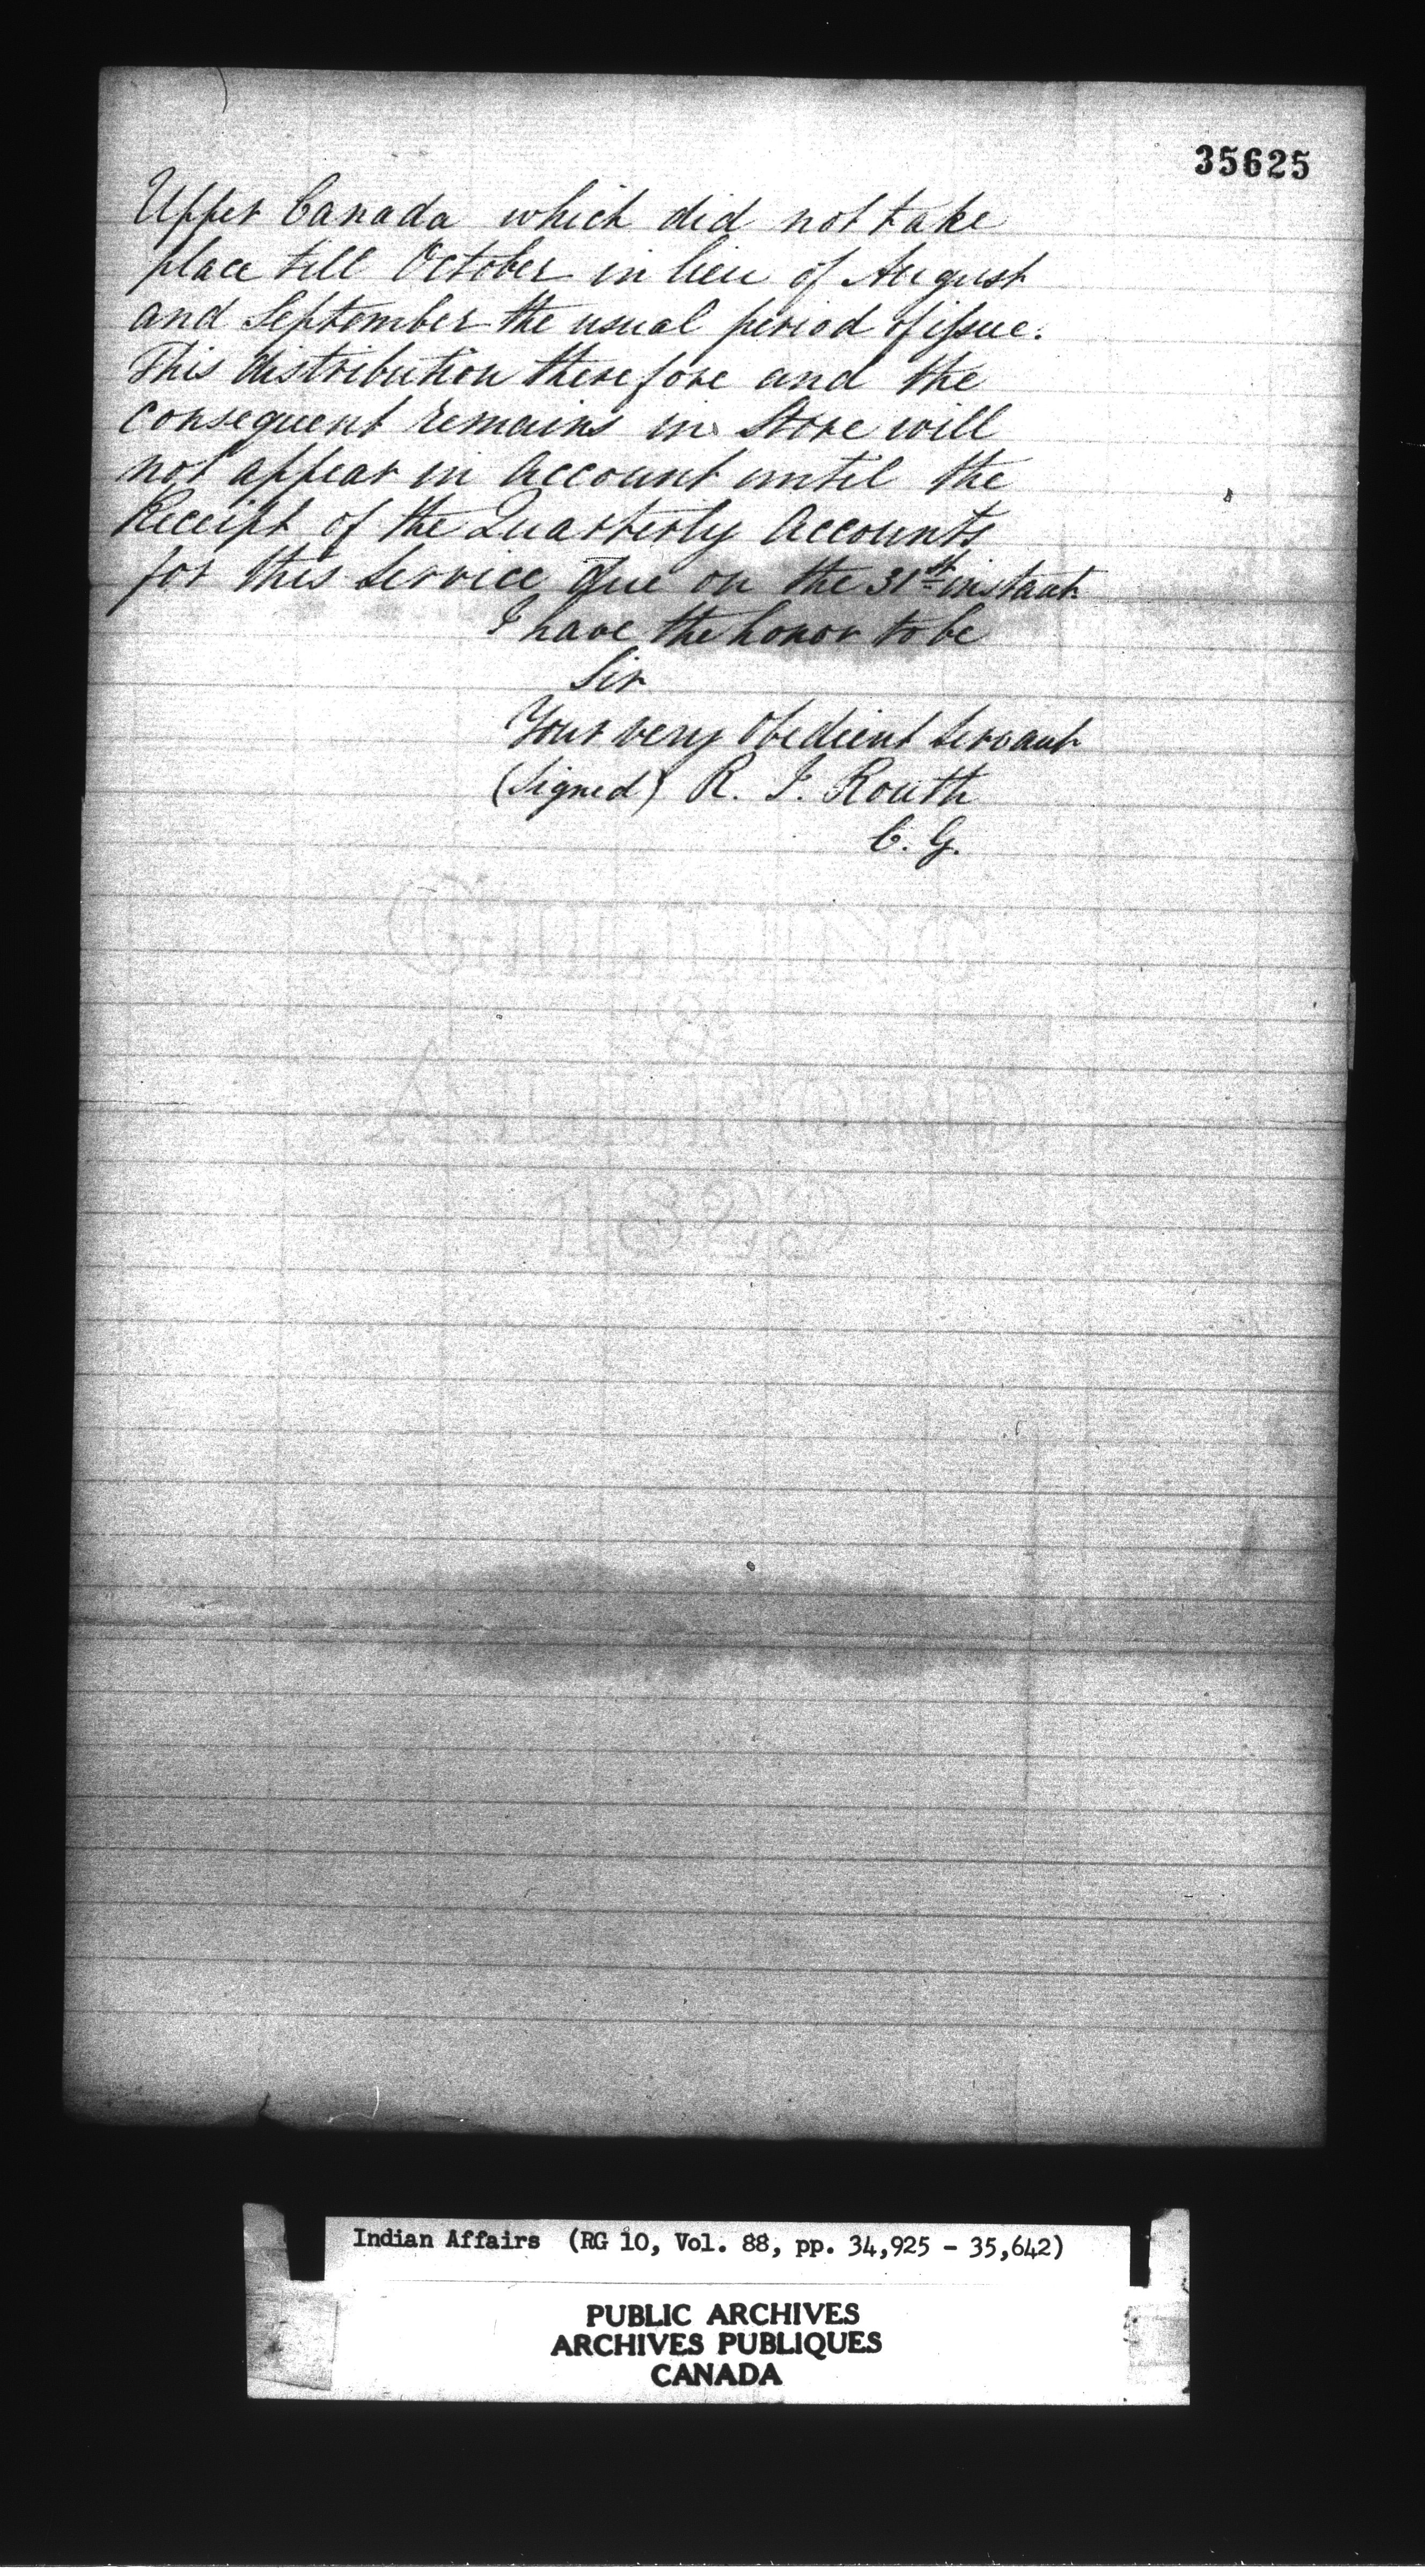 35625
Upper Canada which did not take
place till October in lieu of August
and September the usual period of issue.
This distribution therefore and the
consequent remains in Store will
not appear in Account until the
Receipt of the Quarterly Accounts
for this Service due on the 31st instant.
I have the honor to be
Sir
Your very Obedient Servant
(Signed) R. I. Routh
C. G.
&
1829
Indian Affairs (RG 10, Vol. 88, pp. 34,925 - 35,642)
PUBLIC ARCHIVES
ARCHIVES PUBLIQUES
CANADA